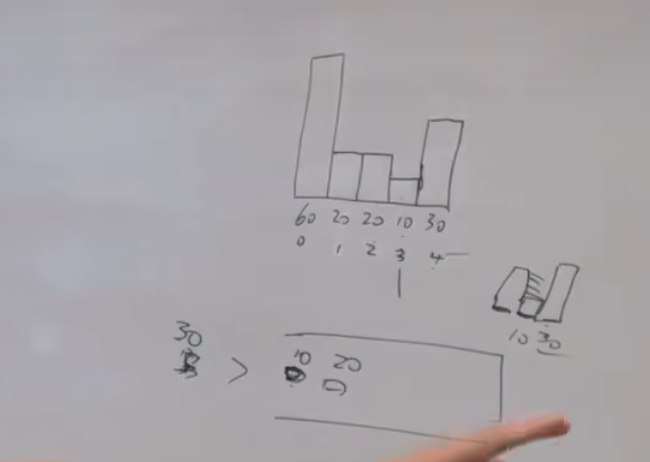 60 20 20 10 30
0 1 2 3 4
10 30
30
> 10 20